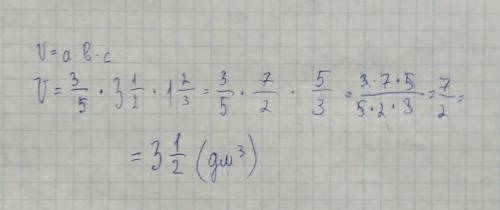 V = а · в · с
V = 3/5 · 3 1/2 · 1 2/3 = 3/5 · 7/2 · 5/3 = 3·7·5/5·2·3 = 7/2 =
= 3 1/2 (дм³)